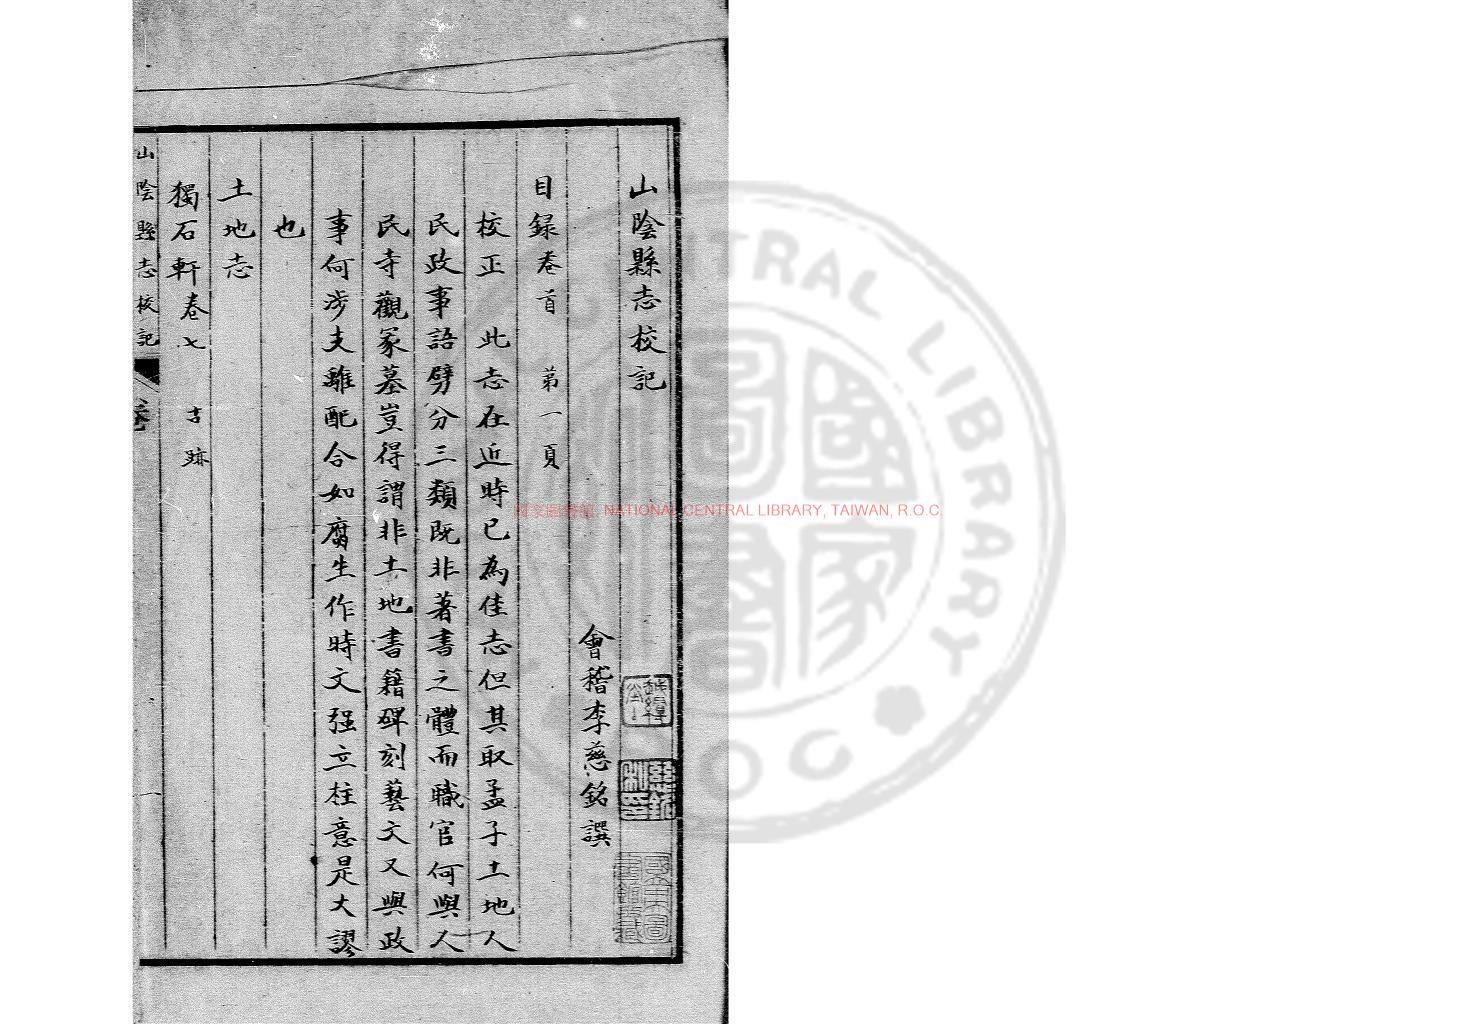 山陰縣志校記
會稽李慈銘譔
目錄卷首 第一頁
校正 此志在近時已為佳志但其取孟子土地人
民政事語劈分三類既非著書之體而職官何與人
民寺觀冢墓豈得謂非土地書籍碑刻藝文又與政
事何涉支離配合如腐生作時文强立柱意是大謬
也
土地志
獨石軒卷七 古蹟
山陰縣志校記
國家圖書館, NATIONAL CENTRAL LIBRARY, TAIWAN, R.O.C.
CENTRAL LIBRARY
ROC
國家圖書